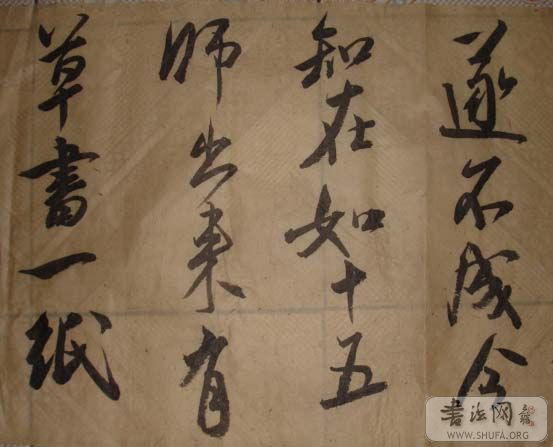 遂不成今
知在如十五
師出来有
草書一紙
书法网
WWW.SHUFA.ORG